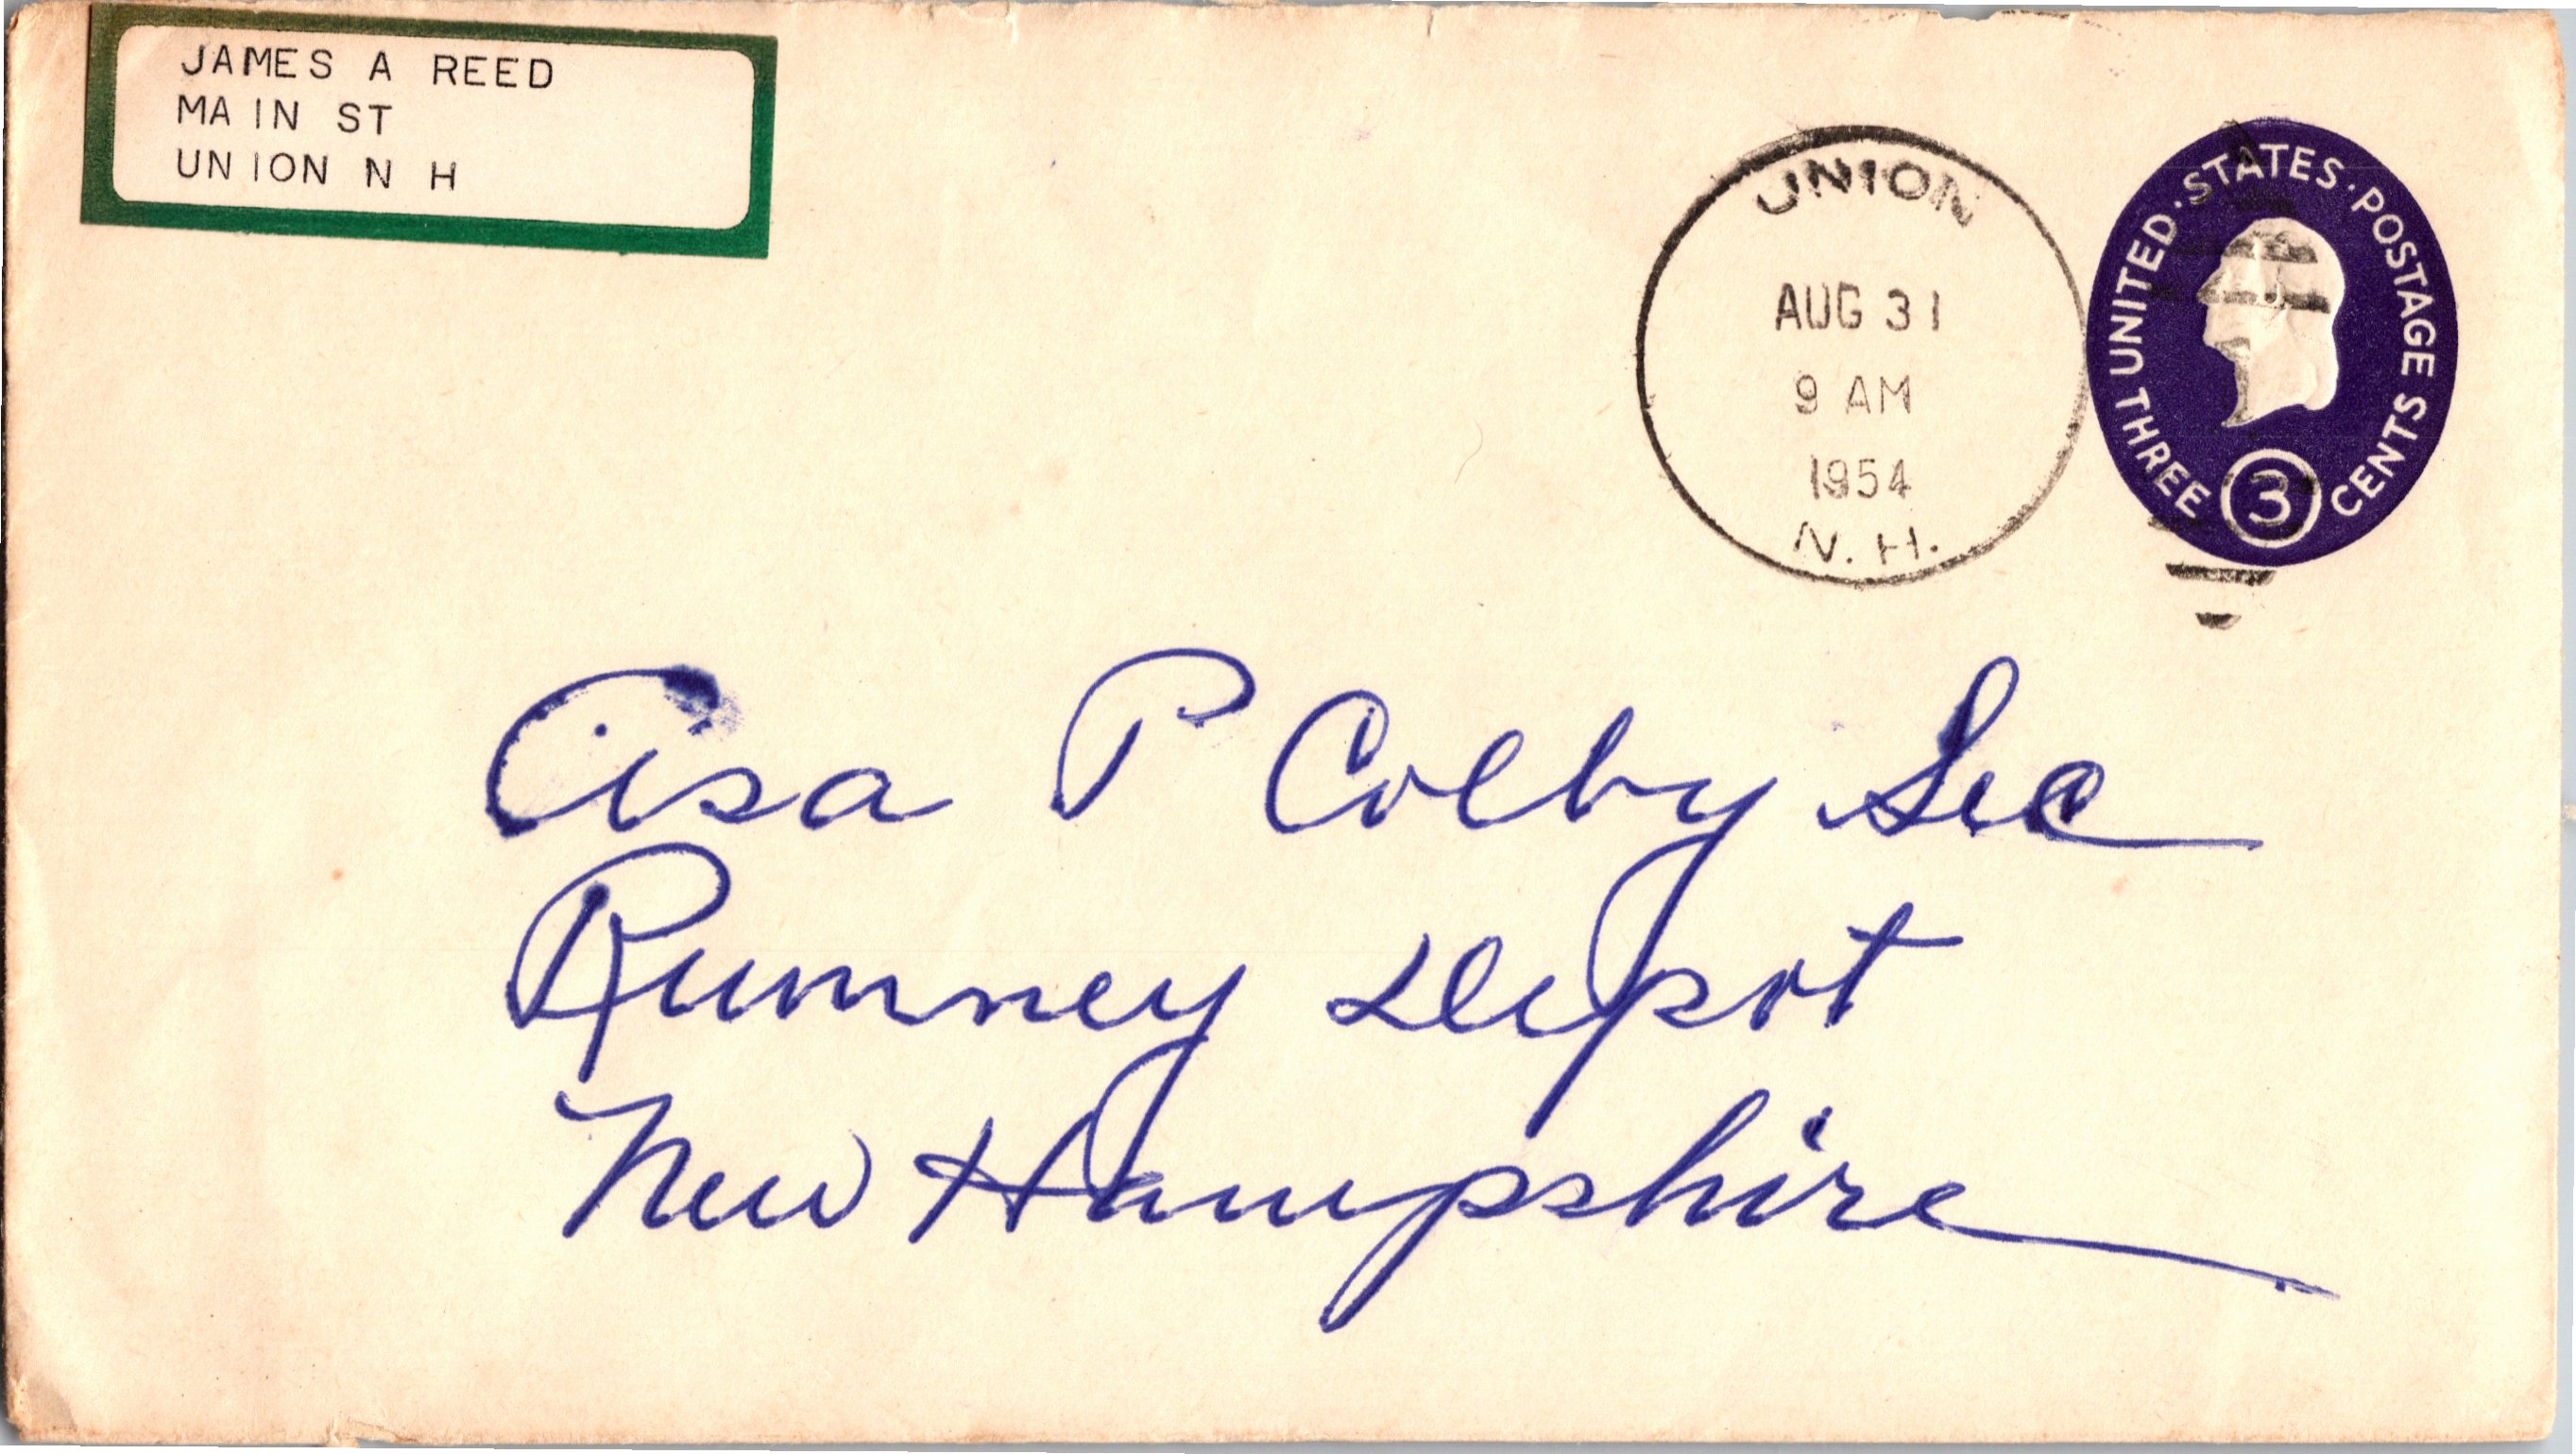 JAMES A REED
MAIN ST
UNION N H
UNION
AUG 31
9 AM
1954
N. H.
UNITED · STATES · POSTAGE
THREE 3 CENTS
Asa P Colby Sec
Rumney Depot
New Hampshire